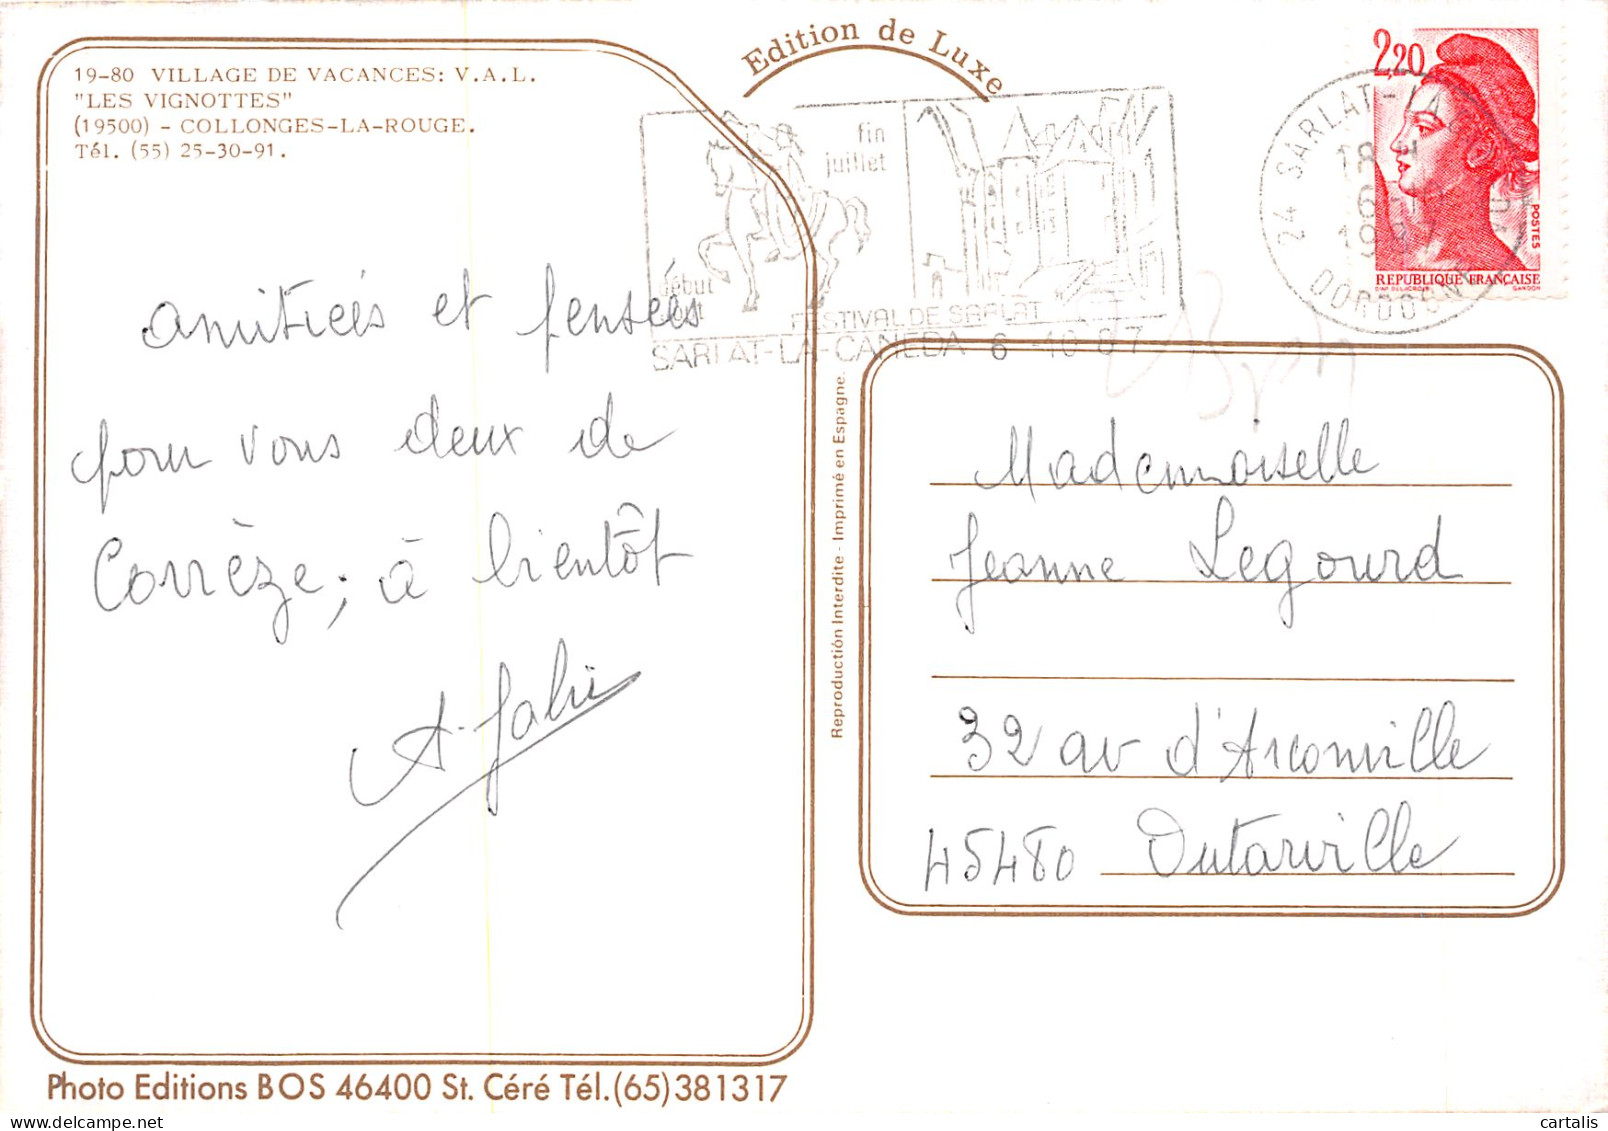 Edition de Luxe
19-80 VILLAGE DE VACANCES: V.A.L.
"LES VIGNOTTES"
(19500) - COLLONGES-LA-ROUGE.
Tél. (55) 25-30-91.
fin
juillet
début
août
FESTIVAL DE SARLAT
SARLAT-LA-CANEDA 6 -10 87
24 SARLAT-LA-
DORDOGN
2,20
POSTES
REPUBLIQUE FRANÇAISE
GANDON
amitiées et pensées
pour vous deux de
Corrèze; à bientôt
Reproduction Interdite - Imprimé en Espagne.
Mademoiselle
Jeanne Legourd
32 av d'Arconville
45480 Outarville
Photo Editions BOS 46400 St. Céré Tél.(65)381317
cartalis